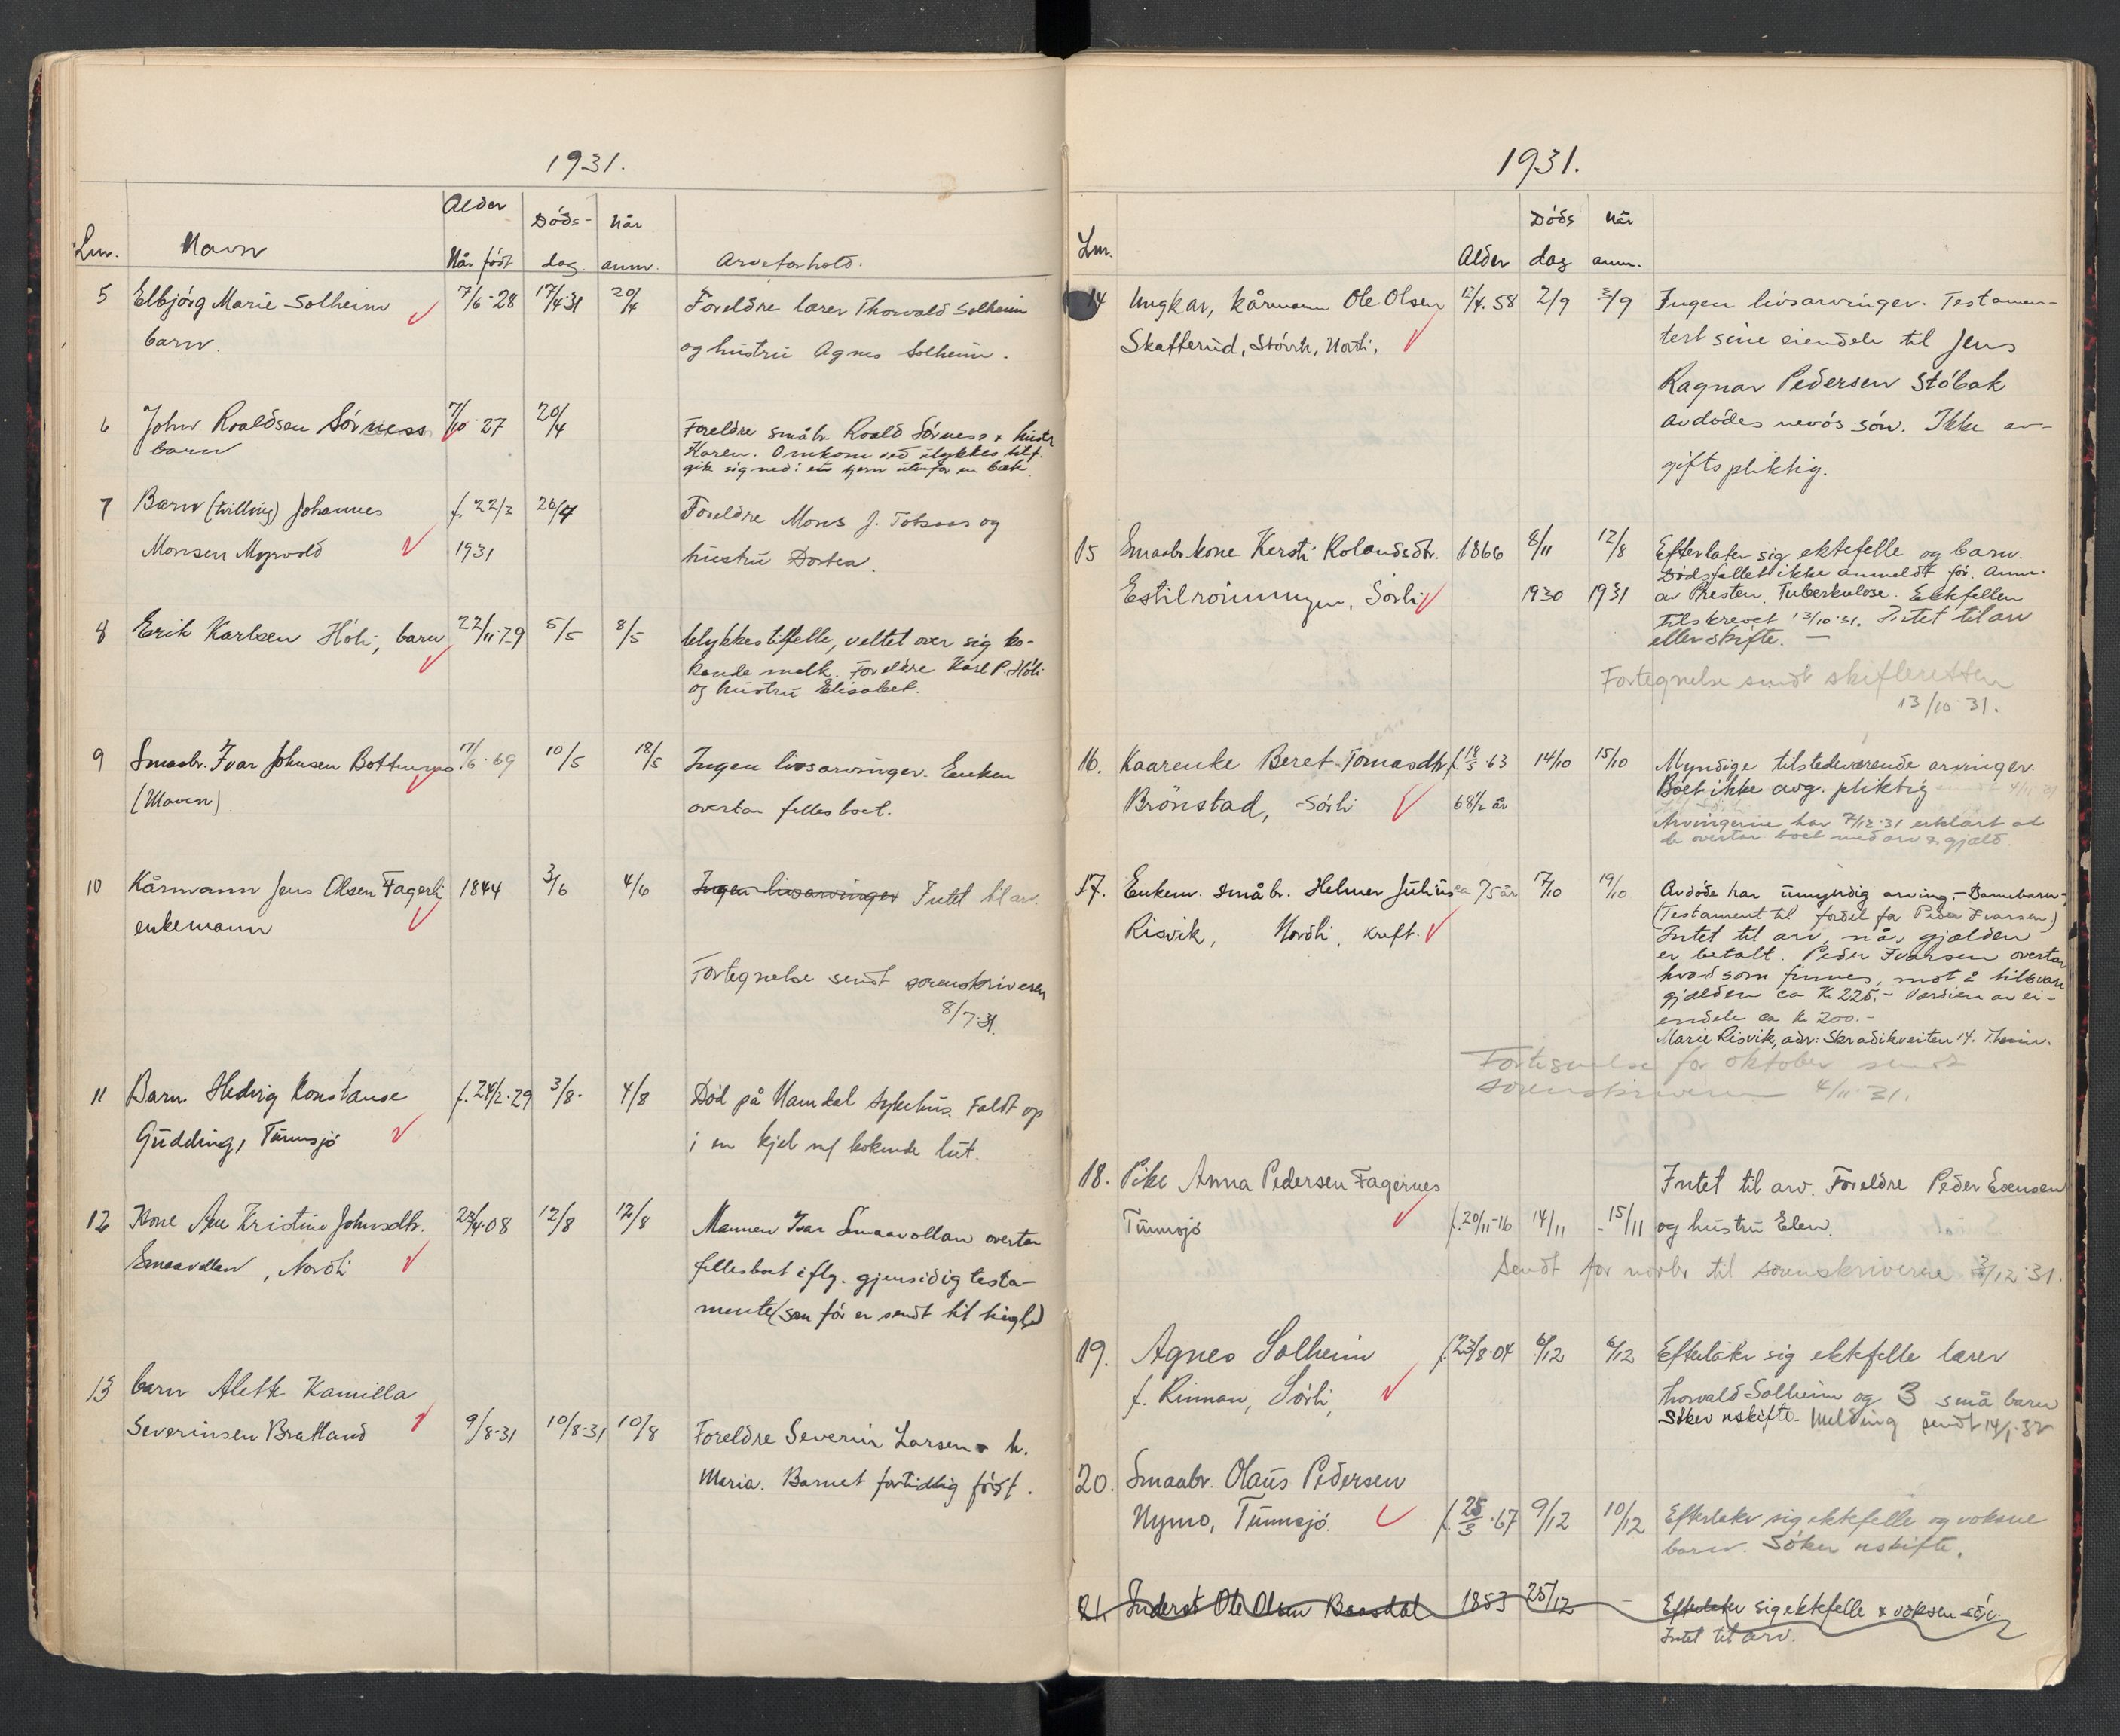 1931.
Lnr. Navn Alder Når født Døds-dag. Når anm. Arveforhold.
5 Elbjørg Marie Solheim 7/6-28 17/4 31 20/4 Foreldre lærer Thorvald Solheim
barn. og hustru Agnes Solheim.
6 John Roaldsen Sørness 7/10-27 20/4 Foreldre småbr. Roald Sørness & hustr
barn Karen. Omkom ved ulykkestilf.
gik sig ned i utenfor en bæk.
7 Barn (tvilling) Johannes f. 22/2 26/4 Foreldre Mons J. og
Monsen Myrvold 1931 hustru Dortea.
8 Erik Karlsen Høli, barn 22/11-29 5/5 8/5 Ulykkestilfelle, veltet over sig ko-
kende melk. Foreldre Karl P. Høli
og hustru Elisabet.
9 Smaabr. Ivar Johnsen 17/6-69 10/5 18/5 Ingen livsarvinger. Enken
overtar fellesboet.
10 Kårmann Jens Olsen Fagerli 1844 3/6 4/6 Ingen livsarvinger Intet til arv.
enkemann
Fortegnelse sendt sorenskriveren
8/7-31.
11 Barn Hedvig Konstanse f. 24/2-29 3/8- 4/8 Død på Namdal sykehus. Faldt op
Gudding, Tunnsjø i en kjel m/ kokende lut.
12 Kone Ane Kristine Johnsdtr. 08 12/8 12/8 Mannen Ivar Smaavollan overtar
Smaavollan, Nordli fellesboet iflg. gjensidig testa-
mente (som før er sendt til
13 barn Aleth Kamilla
Severinsen Bratland 9/8-31 10/8-31 10/8 Foreldre Severin Larsen & h.
Maria. Barnet fortidlig født.
1931.
Lnr. Alder Døds dag Når anm.
14 Ungkar, kårmann Ole Olsen 12/4-58 2/9 3/9 Ingen livsarvinger. Testamen-
Skafterud, Nordli, tert sine eiendele til Jens
Ragnar Pedersen Støbak
avdødes nevøs søn. Ikke av-
giftspliktig.
15 Smaabr.kone Kersti Rolandsdtr. 1866 8/11 12/8 Efterlater sig ektefelle og barn.
Dødsfallet ikke anmeldt før. Anm.
Estilrönningen, Sørli 1930 1931 av Presten. Tuberkulose. Ektefellen
tilskrevet 13/10-31. Intet til arv
eller skifte. —
Fortegnelse sendt skifteretten
13/10-31.
16. Kaarenke Beret Tomasdtr f. 18/5-63 14/10 15/10 Myndige tilstedeværende arvinger.
Brönstad, Sørli 68½ år Boet ikke avg. pliktig
Arvingerne har 7/12-31 erklært at
de overtar boet med arv & gjæld.
17. Enkem. småbr. Helmer Julius ca 75 år 17/10 19/10 Avdøde har umyndig arving,- Barnebarn-,
Risvik, Nordli, kreft. (Testament til fordel for Peder Ivarsen)
Intet til arv, når gjælden
er betalt. Peder Ivarsen overtar
hvad som finnes, mot å tilsvare
gjælden ca Kr. 225.- Værdien av ei-
endele ca Kr 200.-
Marie Risvik, adr: Skradikveiten 14. T.heim.
Fortegnelse for oktober sendt
sorenskriveren 4/11-31.
18. Pike Anna Pedersen Fagernes Intet til arv. Foreldre Peder Evensen
Tunnsjø f. 20/11-16 14/11 -15/11 og hustru Elen.
Sendt for novbr til sorenskriveren 3/12-31.
19. Agnes Solheim f. 23/8-04 6/12 6/12 Efterlater sig ektefelle lærer
f. Rinnan, Sørli, Thorvald Solheim og 3 små barn
Søker uskifte. Melding sendt 14/1-32
20. Smaabr. Olaus Pedersen
Nymo, Tunnsjø. f. 25/3-67 9/12 10/12 Efterlater sig ektefelle og voksne
barn. Søker uskifte.
21. Inderst Ole Olsen 1853 25/12 - Efterlater sig ektefelle & voksen søn.
Intet til arv.